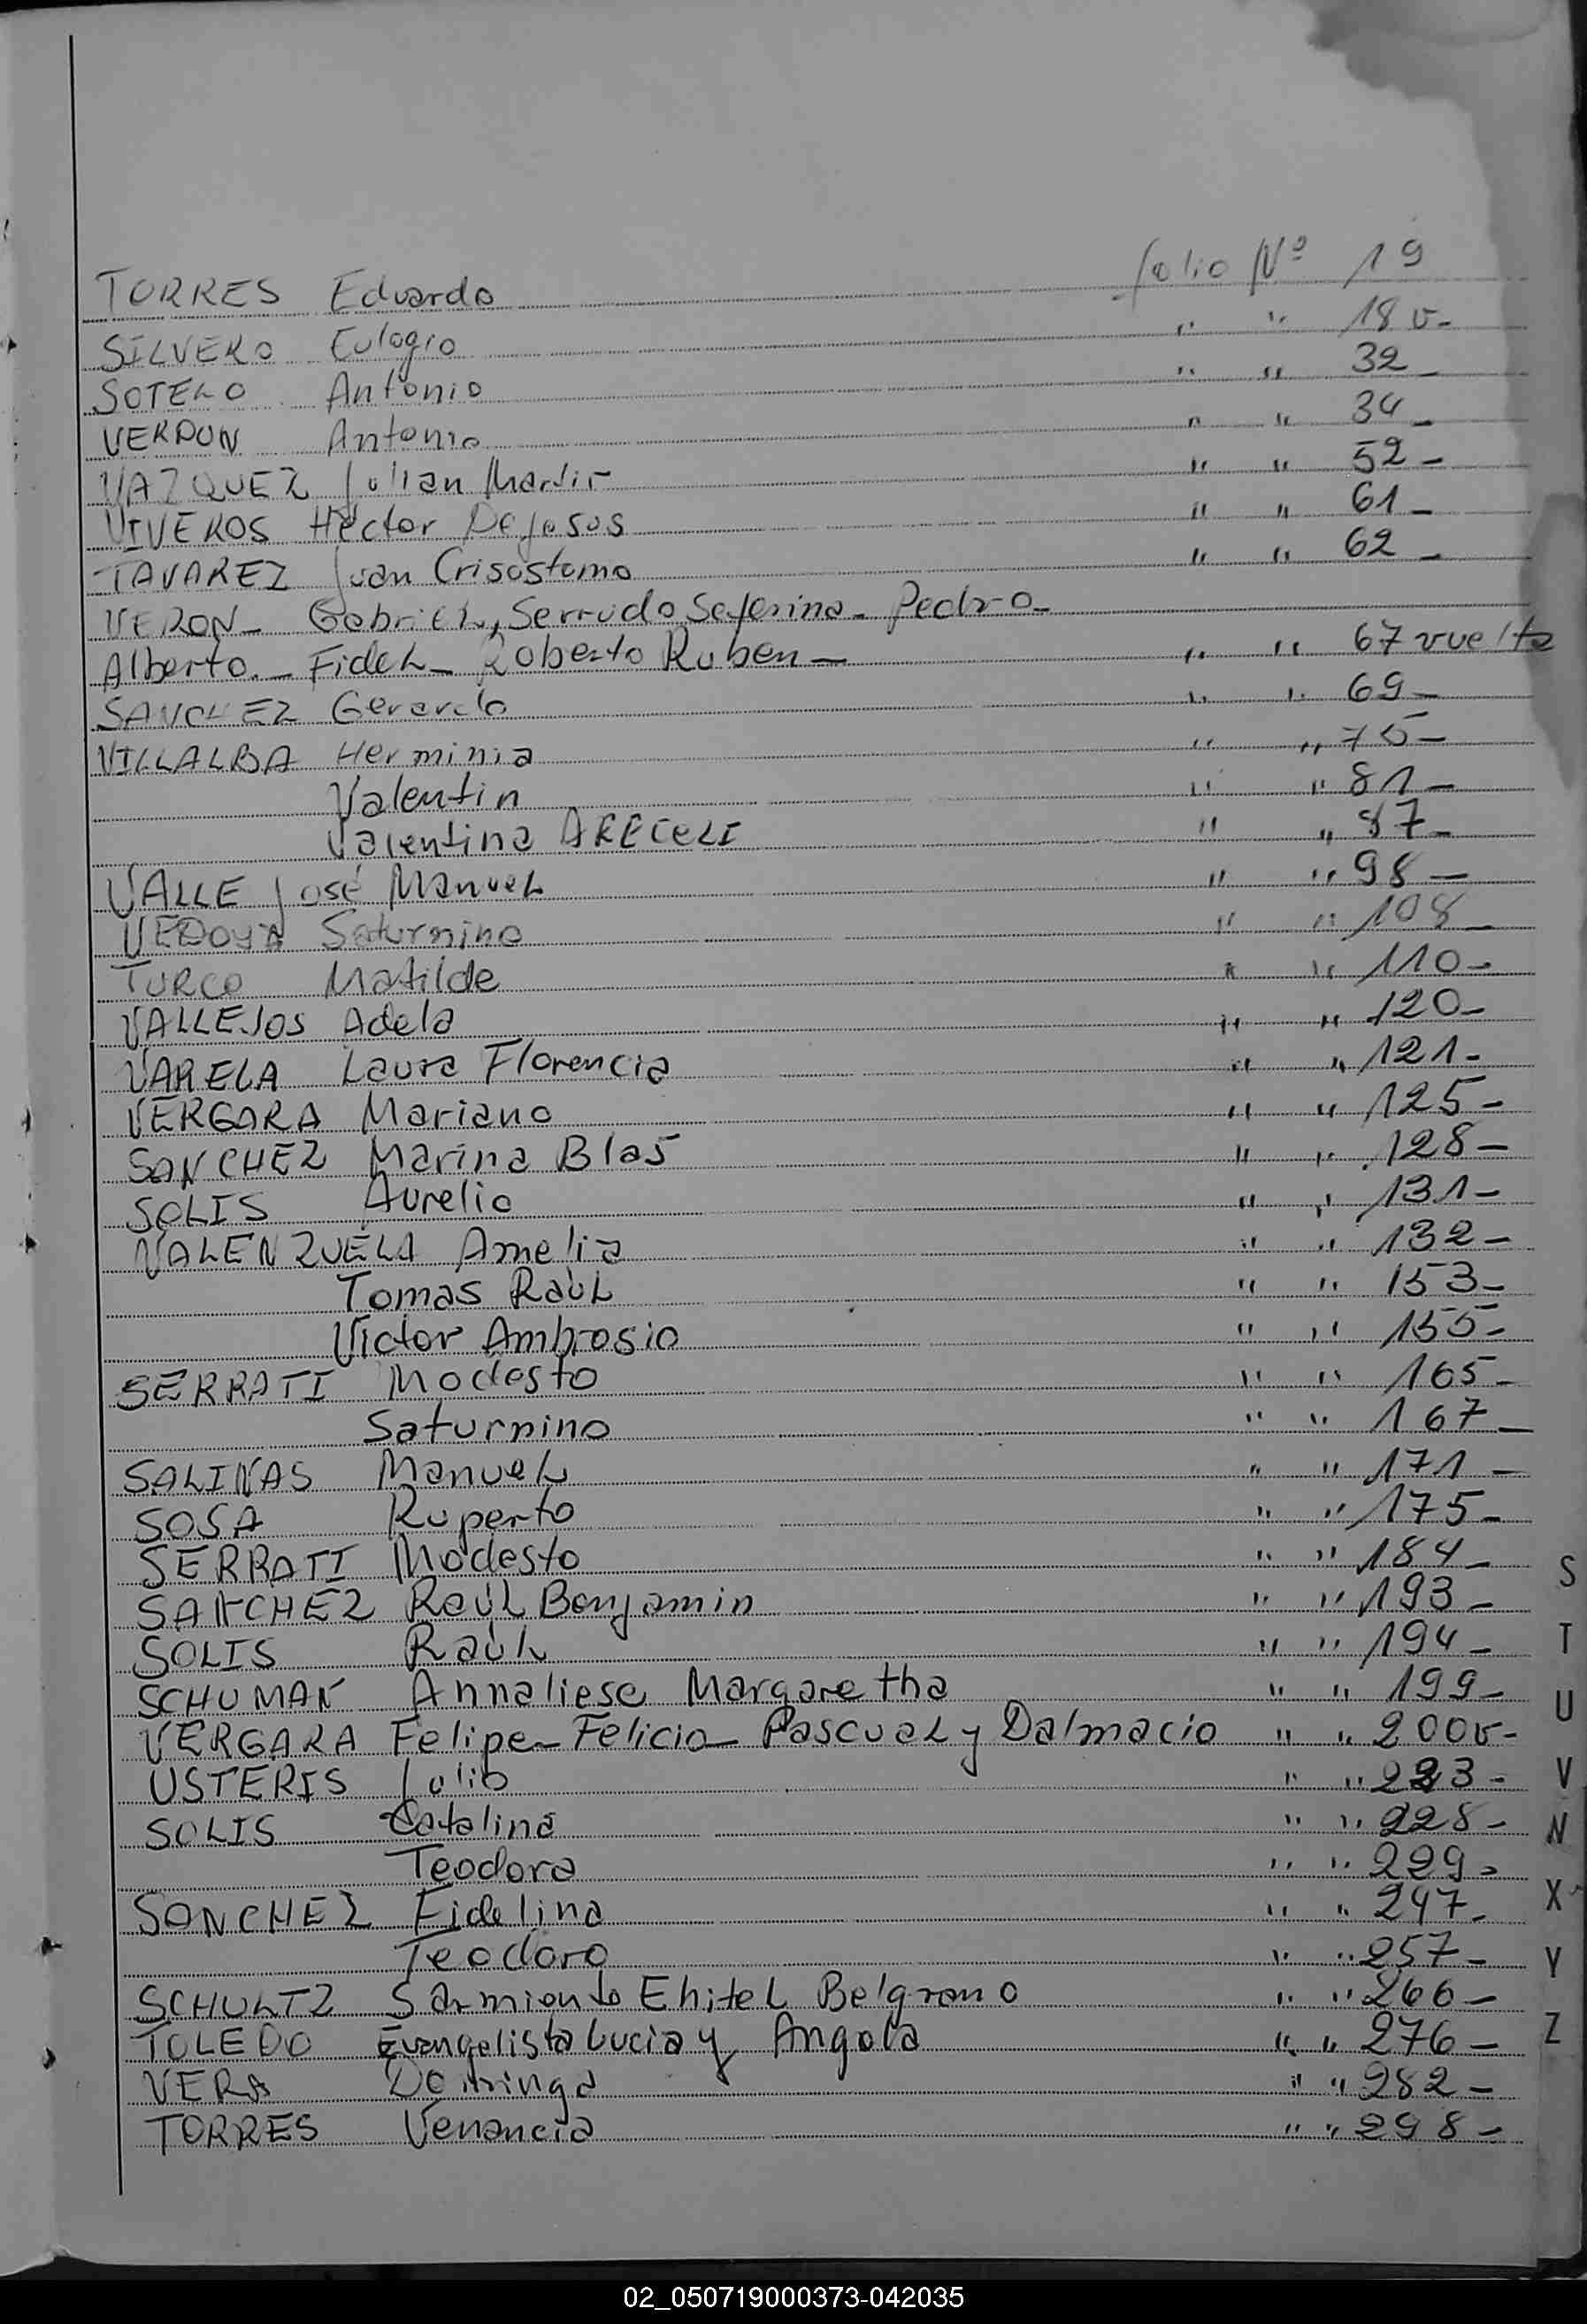 TORRES Eduardo folio Nº 19
SILVERO Eulogio " " 18 v-
SOTELO Antonio " " 32-
VERDUN Antonio " " 34-
VAZQUEZ Julian Martir " " 52-
VIVEROS Héctor DeJesus " " 61-
TAVAREZ Juan Crisostomo " " 62-
VERON- Gabriel, Serrudo Seferino- Pedro-
Alberto.- Fidel- Roberto Ruben- " " 67 vuelta
SANCHEZ Gerardo " " 69-
VILLALBA Herminia " " 75-
Valentin " " 81-
Valentina ARECELI " " 87-
VALLE José Manuel " " 98-
VEDOYA Saturnino " " 108-
TURCO Matilde " " 110-
VALLEJOS Adela " " 120-
VARELA Laura Florencia " " 121-
VERGARA Mariano " " 125-
SANCHEZ Marina Blas " " 128-
SOLIS Aurelio " " 131-
VALENZUELA Amelia " " 132-
Tomas Raúl " " 153-
Victor Ambrosio " " 155-
SERRATI Modesto " " 165-
Saturnino " " 167-
SALINAS Manuel " " 171-
SOSA Ruperto " " 175-
SERRATI Modesto " " 184-
SANCHEZ Raúl Benjamin " " 193-
SOLIS Raúl " " 194-
SCHUMAN Annaliese Margaretha " " 199-
VERGARA Felipe- Felicia- Pascual y Dalmacio " " 200v-
USTERIS Julio " " 223-
SOLIS Catalina " " 228-
Teodora " " 229-
SANCHEZ Fidelina " " 247-
Teodoro " " 257-
SCHULTZ Sarmiento Ehitel Belgrano " " 266-
TOLEDO Evangelista Lucia y Angola " " 276-
VERA Dominga " " 282-
TORRES Venancia " " 298-
S
T
U
V
N
X
Y
Z
02_050719000373-042035